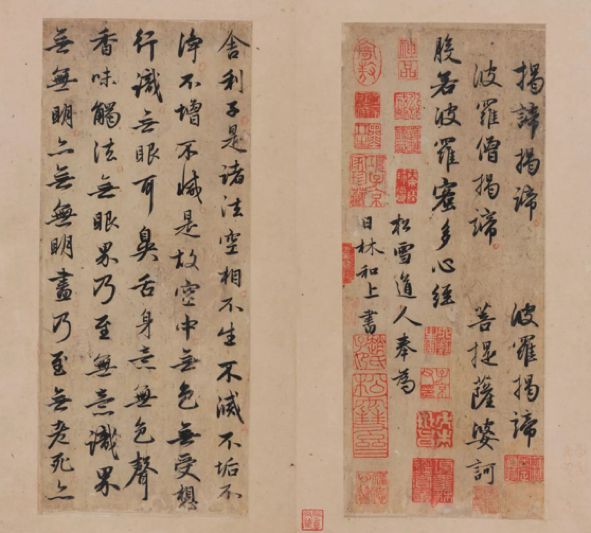 揭諦揭諦 波羅揭諦
波羅僧揭諦 菩提薩婆訶
般若波羅蜜多心經
松雪道人奉為
日林和上書
舍利子是諸法空相不生不滅不垢不
淨不增不減是故空中無色無受想
行識無眼耳鼻舌身意無色聲
香味觸法無眼界乃至無意識界
無無明亦無無明盡乃至無老死亦